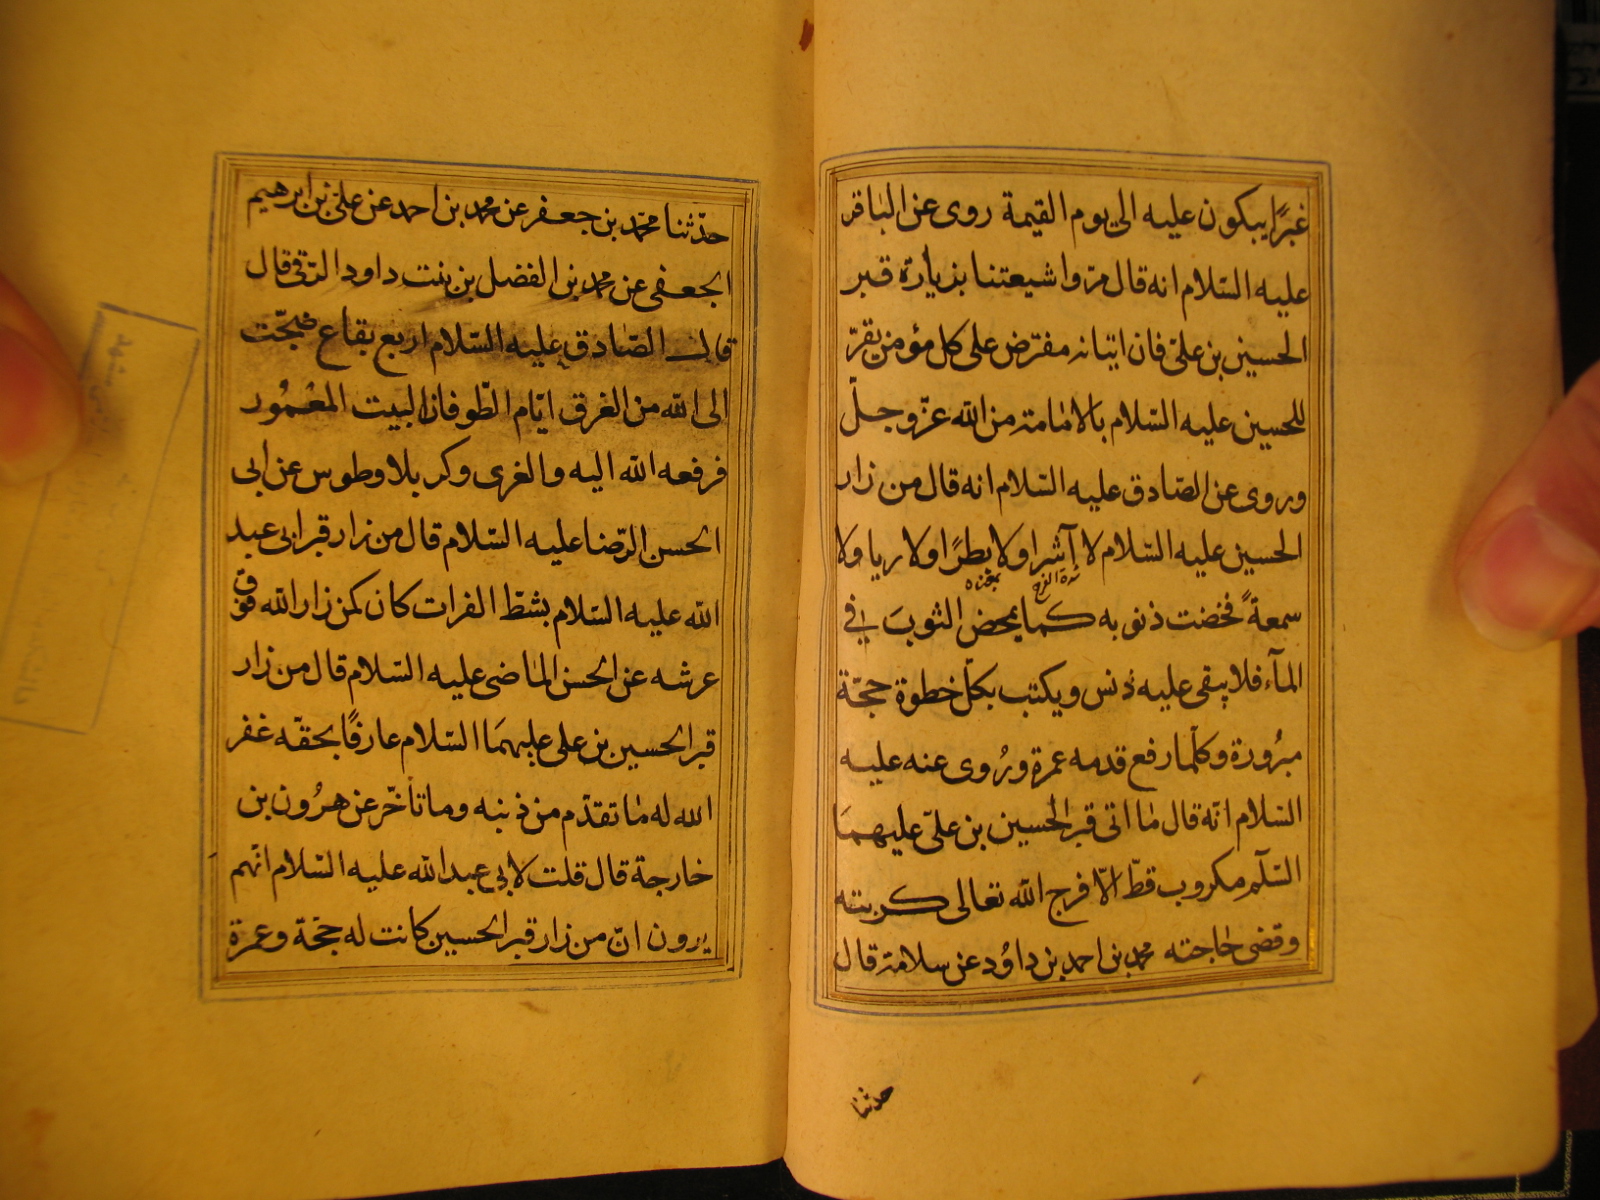 غبرًا يبكون عليه الى يوم القيمة روى عن الباقر
عليه السّلام انه قال مرّوا شيعتنا بزيارة قبر
الحسين بن علىّ فان اتيانه مفترض على كل مؤمن يقرّ
للحسين عليه السّلام بالامامة من الله عزّ وجلّ
وروى عن الصّادق عليه السّلام انه قال من زار
الحسين عليه السّلام لا آشرا ولا بطرًا ولا ريا ولا
سمعةً فخضت ذنوبه كما يمخض الثوبَ فى
المآء فلا يبقى عليه دنس ويكتب بكلّ خطوة حجّة
مبرُورة وكلّما رفع قدمه عمرة ورُوى عنه عليه
السّلام انّه قال ما اتى قبر الحسين بن علىّ عليهمَا
السّلم مكروب قطّ الّا فرج الله تعالى كربته
وقضى حاجته محمد بن احمد بن داوُد عن سلامة قال
حدثنا
حدّثنا محمّد بن جعفر عن محمد بن احمد عن علىّ بن ابرهيم
الجعفى عن محمد بن الفضل بن بنت داود الرّقى قال
قال الصّادق عليه السّلام اربع بقاع ضجّت
الى الله من الغرق ايّام الطّوفان البيت المعمُور
فرفعه الله اليه والغرى وكربلا وطوس عن ابى
الحسن الرّضا عليه السّلام قال من زار قبر ابى عبد
الله عليه السّلام بشطّ الفرات كان كمن زار الله فوق
عرشه عن الحسن الماضى عليه السّلام قال من زار
قبر الحسين بن على عليهمَا السّلام عارفًا بحقّه غفر
الله له ما تقدّم من ذنبه وما تأخّر عن هرُون بن
خارجة قال قلت لابى عبد الله عليه السّلام انّهم
يرون انّ من زار قبر الحسين كانت له حجّة وعمرة